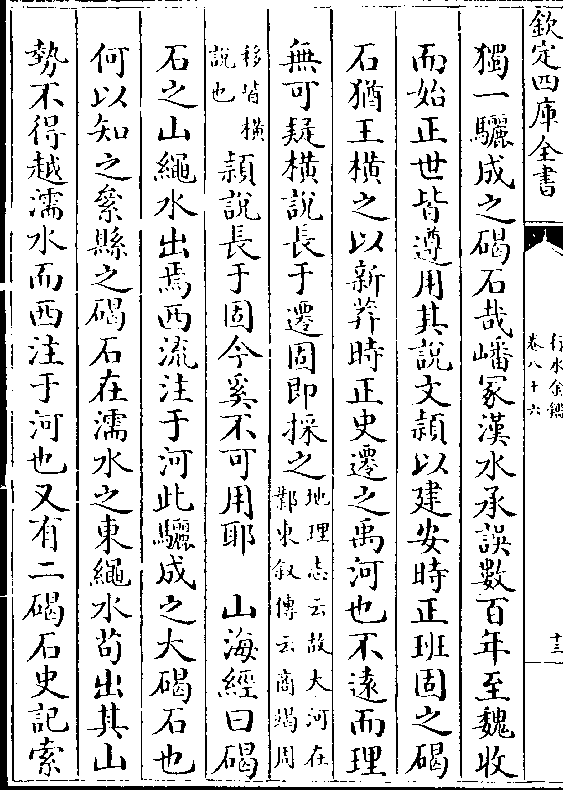 欽定四庫全書
行水金鑑
卷八十六
十三
獨一驪成之碣石哉嶓冢漢水承誤數百年至魏收
而始正世皆遵用其說文頴以建安時正班固之碣
石猶王橫之以新莽時正史遷之禹河也不遠而理
無可疑橫說長于遷固即採之地理志云故大河在
鄴東叙傳云商竭周
移皆橫
說也頴說長于固今奚不可用耶　山海經曰碣
石之山繩水出焉西流注于河此驪成之大碣石也
何以知之絫縣之碣石在濡水之東繩水苟出其山
勢不得越濡水而西注于河也又有二碣石史記索